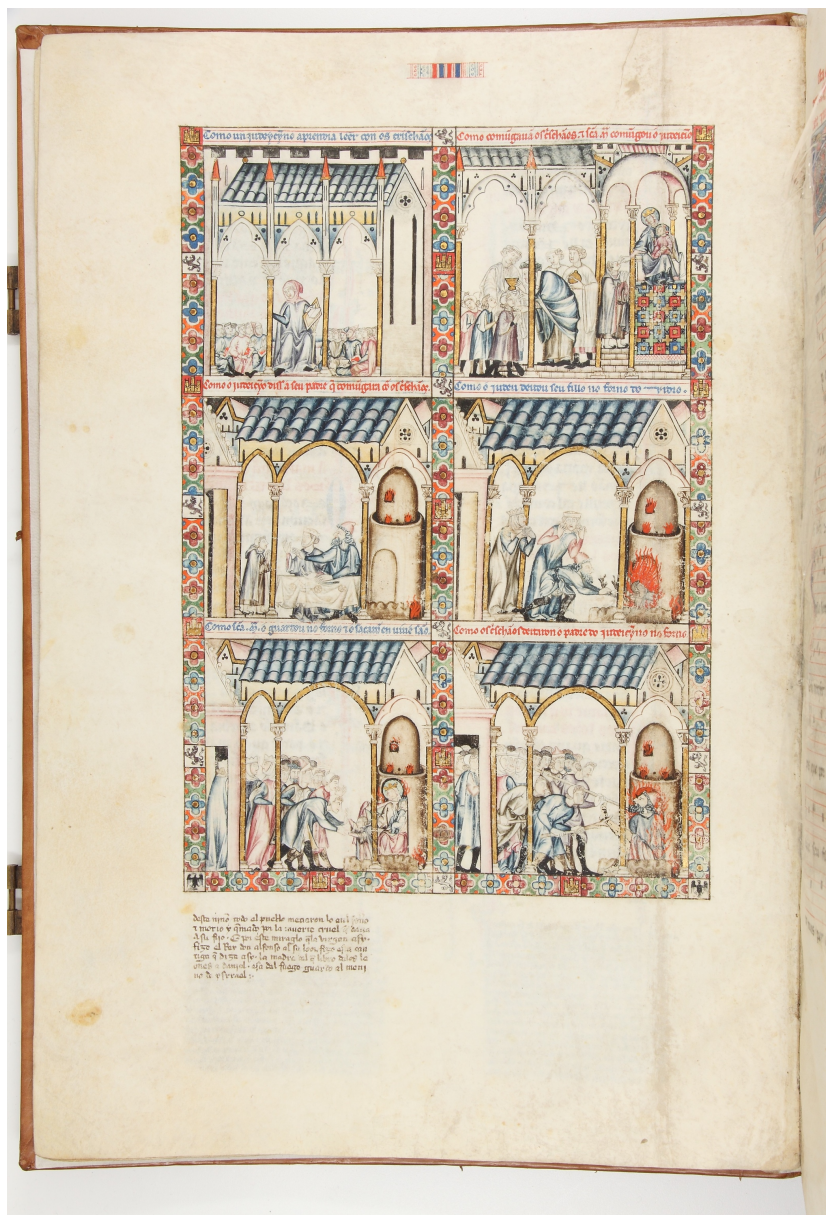 Como un iudeucyno aprendia leer con os crischãos
Como comũgavã os c̃schãos ⁊ sc̃a mª comũgou o iudeucio
Como o iudeucyo diss a seu padre q̃ comũgara cõ os c̃schãos.
Como o iudeu deitou seu fillo no forno do vidro.
Como sc̃a mª o guardou no forno ⁊ o sacarõ en vivo são
Como os c̃schãos deitaron o padre do iudeucyno no forno
deste ninõ todo el pueblo metieron lo en el forno
⁊ murio y q̃mado por la muerte cruel q̃ daua
a su fijo. E por este miraglo q̃ la virgen
fizo el Rey don alfonso a su loor fizo esta can
tiga q̃ dize a se la madre del q̃ libro de los le
ones a daniel. essa del fuego guardo al meni
no de ysrrael